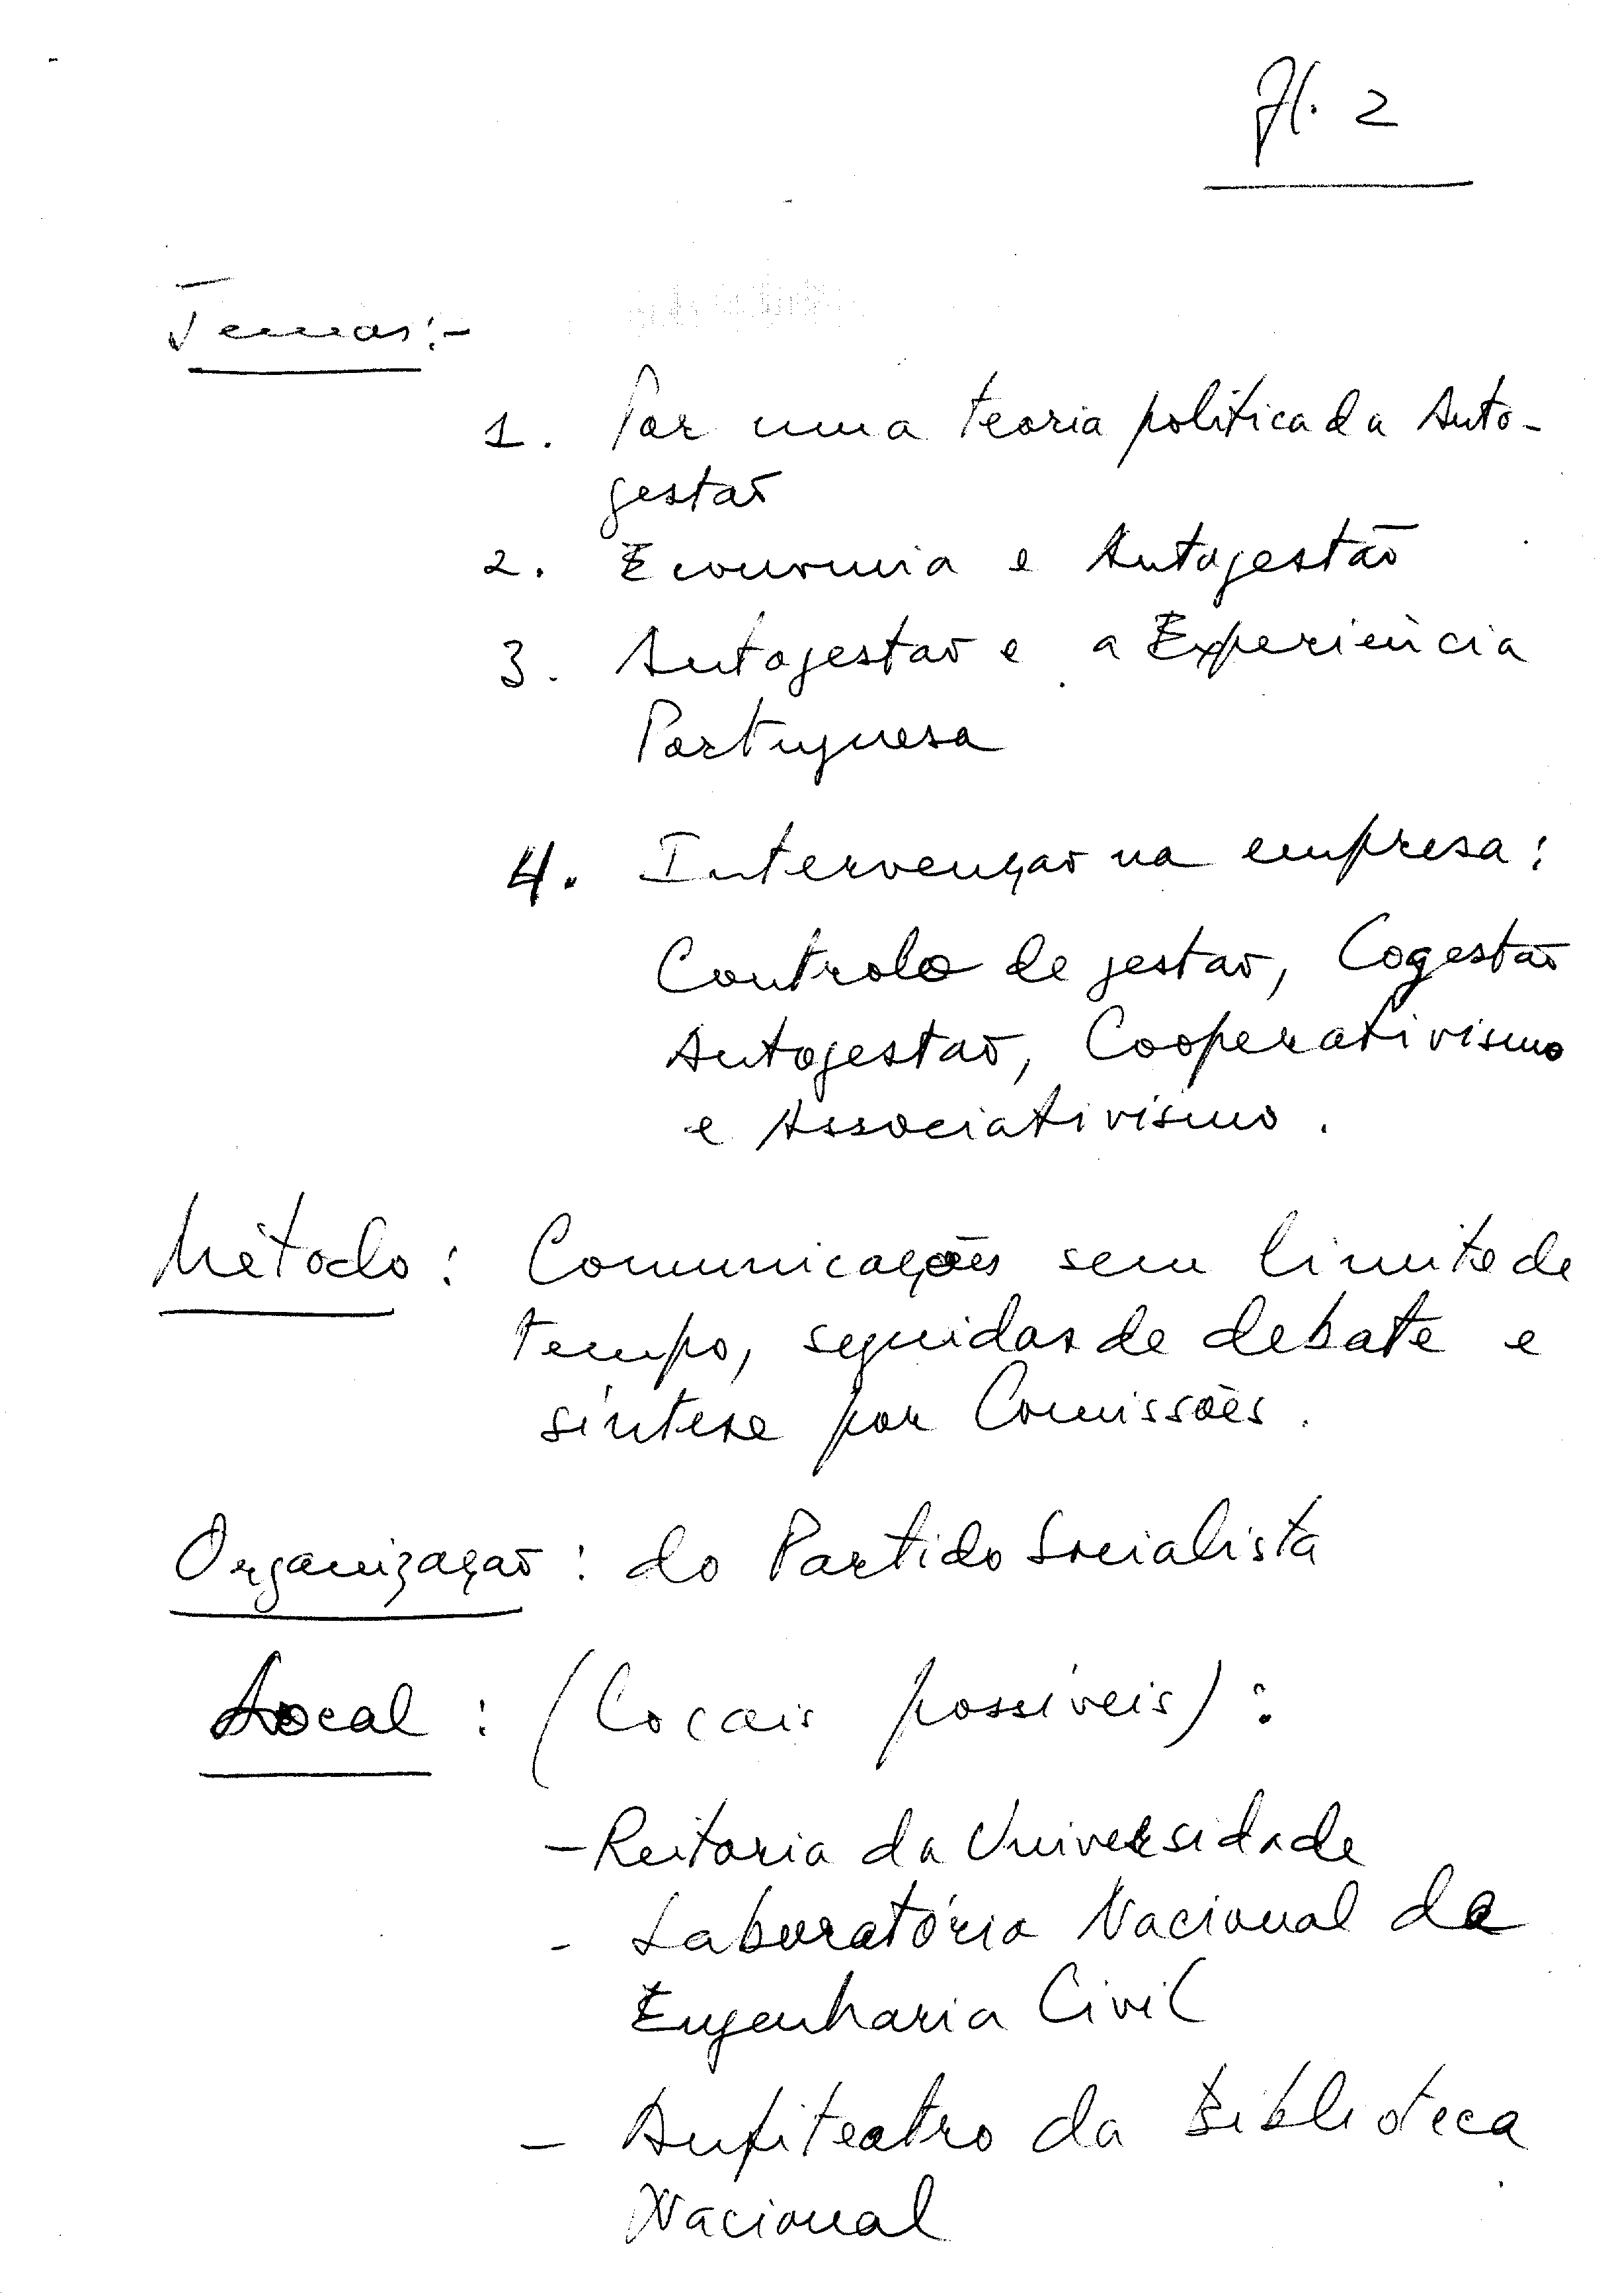 fl. 2
Temas:-
1. Por uma teoria politica da Auto-
gestão
2. Economia e Autogestão
3. Autogestão e a Experiência
Portuguesa
4. Intervenção na empresa:
Controlo de gestão, Cogestão
Autogestão, Cooperativismo
e Associativismo.
Método: Comunicações sem limite de
tempo, seguidas de debate e
síntese por Comissões.
Organização: do Partido Socialista
Local: (Locais possíveis):
- Reitoria da Universidade
- Laboratório Nacional de
Engenharia Civil
- Anfiteatro da Biblioteca
Nacional